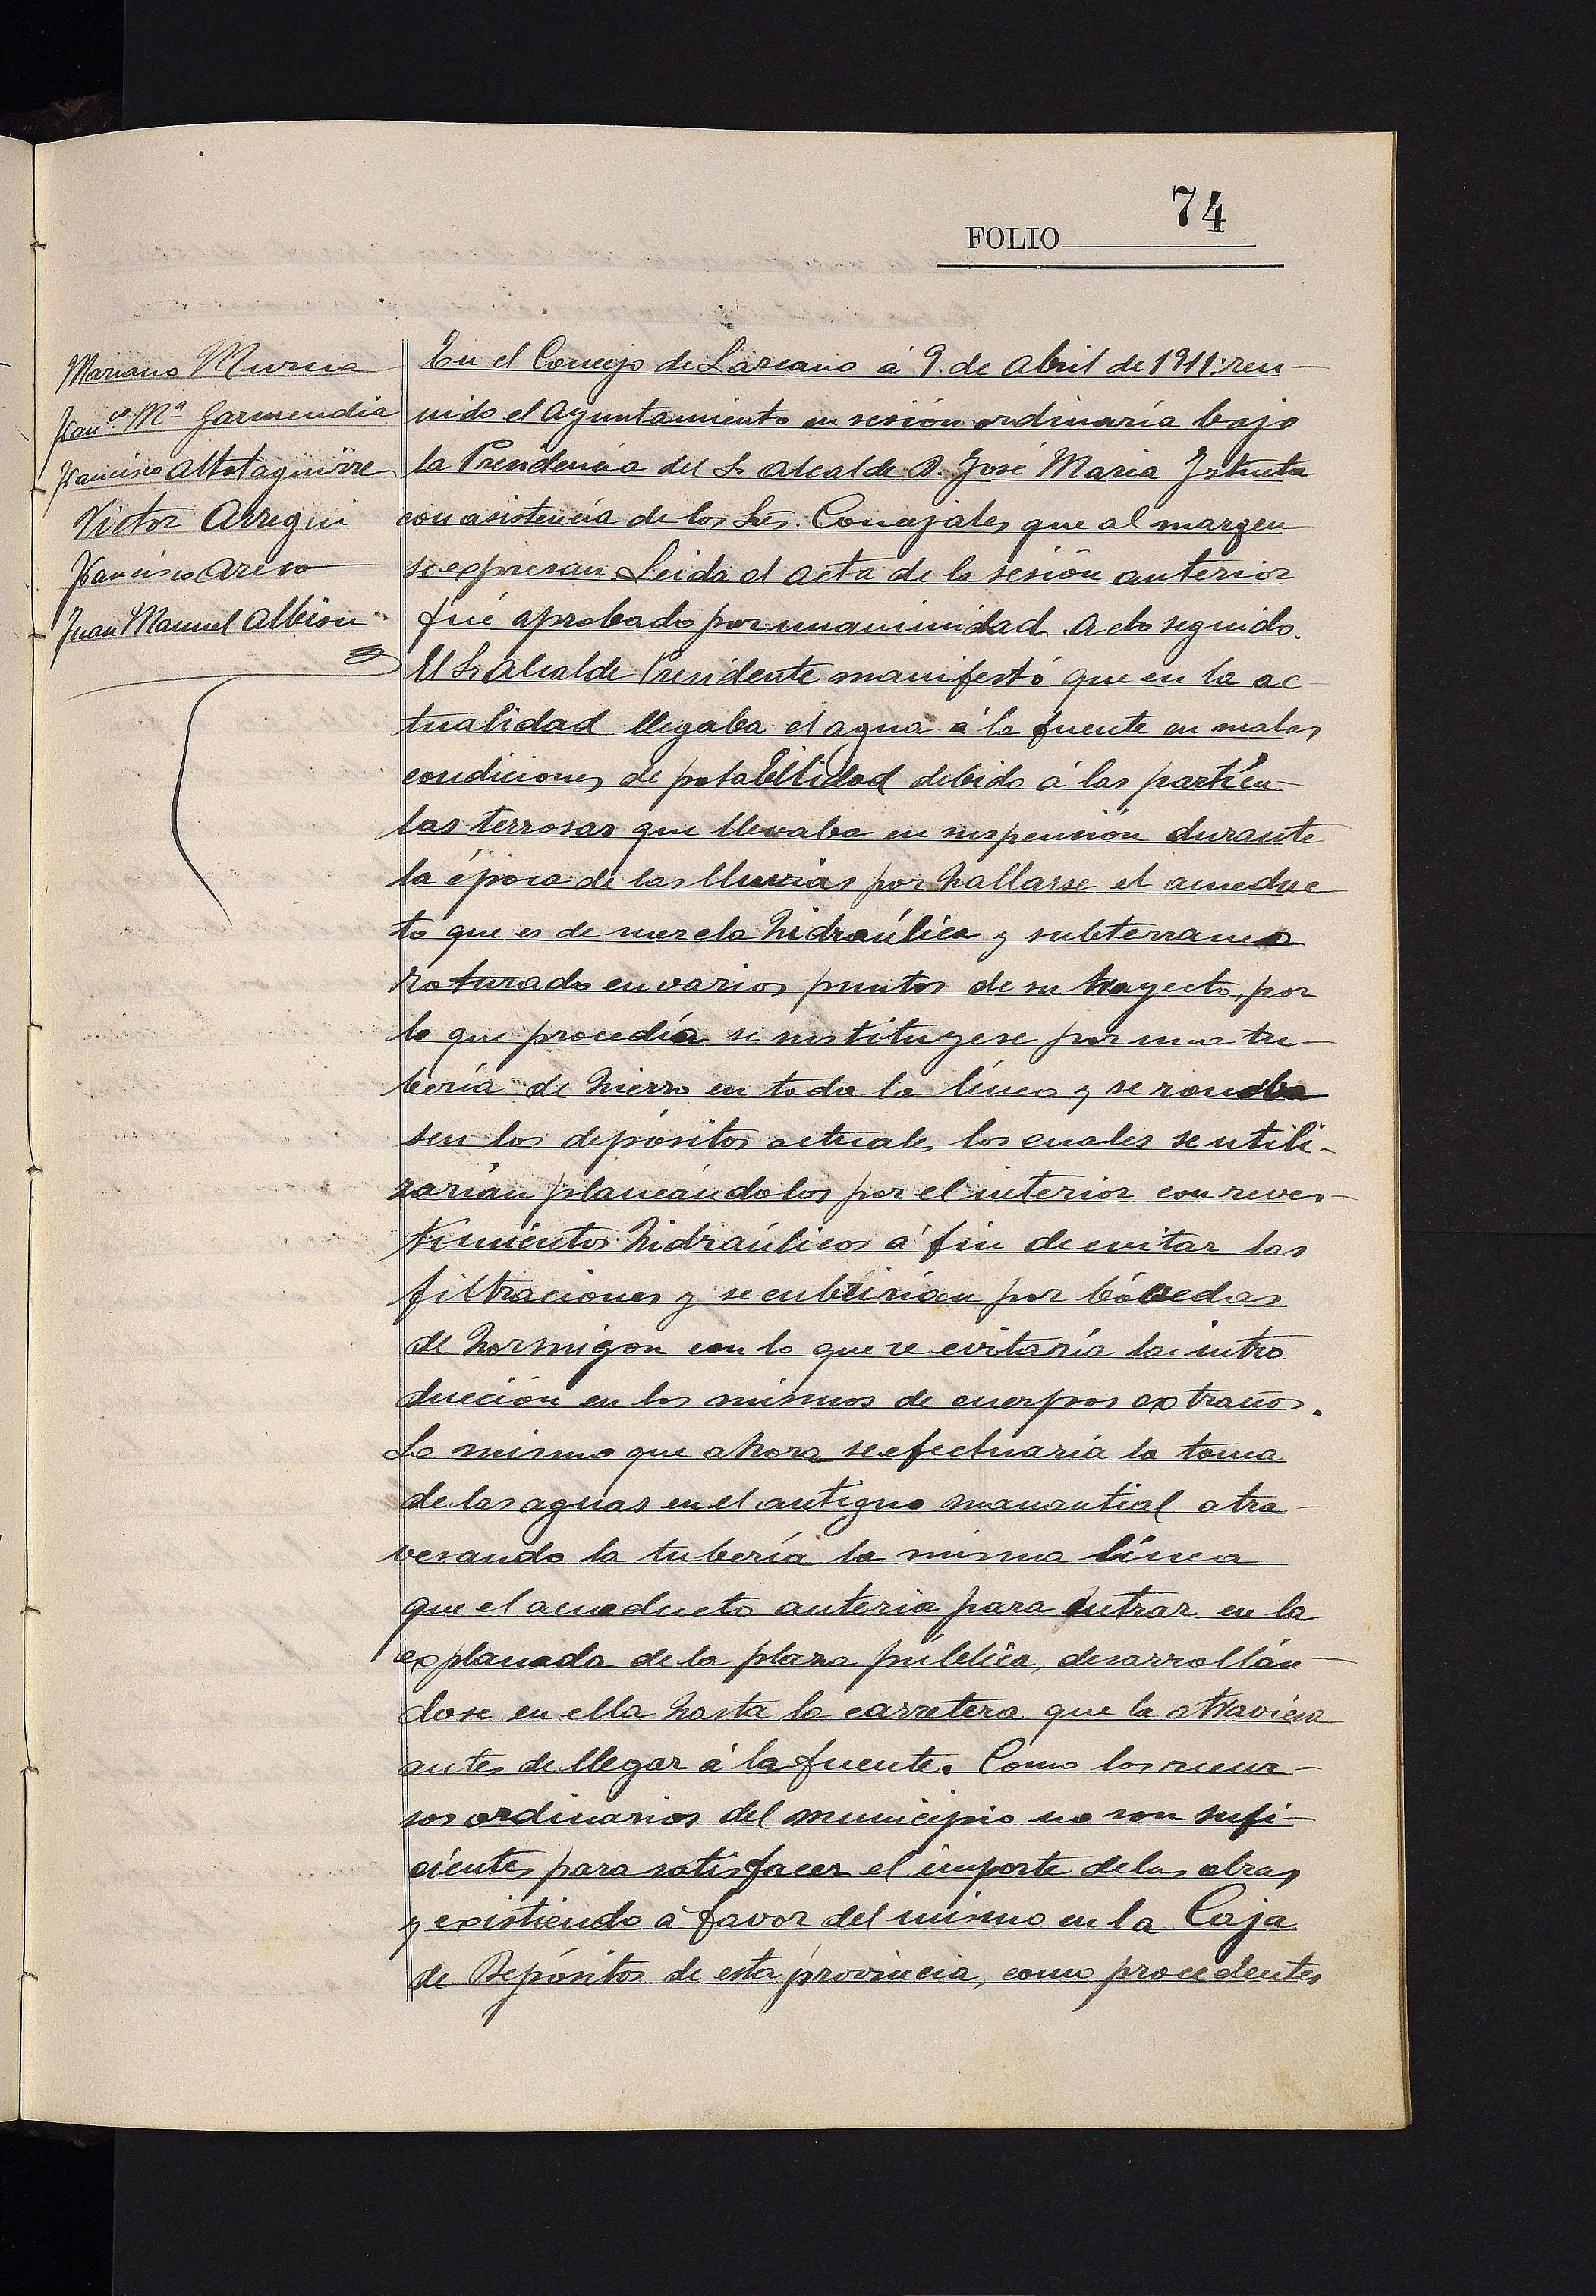 74
FOLIO
Mariano Murcia
Franco Mª Garmendia
Francisco Altolaguirre
Victor Arregui
Francisco Areso
Juan Manuel Albisu
En el Concejo de Lazcano á 9 de Abril de 1911: reu-
nido el Ayuntamiento en sesión ordinaria bajo
la Presidencia del Sr Alcalde D. José María Iztueta
con asistencia de los Sres. Concejales que al margen
se expresan. Leida el acta de la sesión anterior
fué aprobado por unanimidad. Acto seguido.
El Sr Alcalde Presidente manifestó que en la ac-
tualidad llegaba el agua á la fuente en malas
condiciones de potabilidad debido á las partícu-
las terrosas que llevaba en suspensión durante
la época de las lluvias por hallarse el acueduc
to que es de mezcla hidraúlica y subterraneo
roturado en varios puntos de su trayecto, por
lo que procedía se sustituyese por una tu-
bería de hierro en toda la línea y se
sen los depósitos actuales los cuales se utili-
zarían planeándolos por el interior con reves-
timientos hidraúlicos á fin de evitar las
filtraciones y se cubririan por bóvedas
de hormigon con lo que se evitaría la intro
ducción en los mismos de cuerpos extraños.
Lo mismo que ahora se efectuaría la toma
de las aguas en el antiguo manantial atra-
vesando la tubería la misma línea
que el acueducto anterior para entrar en la
explanada de la plaza pública, desarrollán-
dose en ella hasta la carretera que la atraviesa
antes de llegar á la fuente. Como los recur-
sos ordinarios del municipio no son sufi-
cientes para satisfacer el importe de las obras
y existiendo á favor del mismo en la Caja
de Depósitos de esta provincia, como procedentes